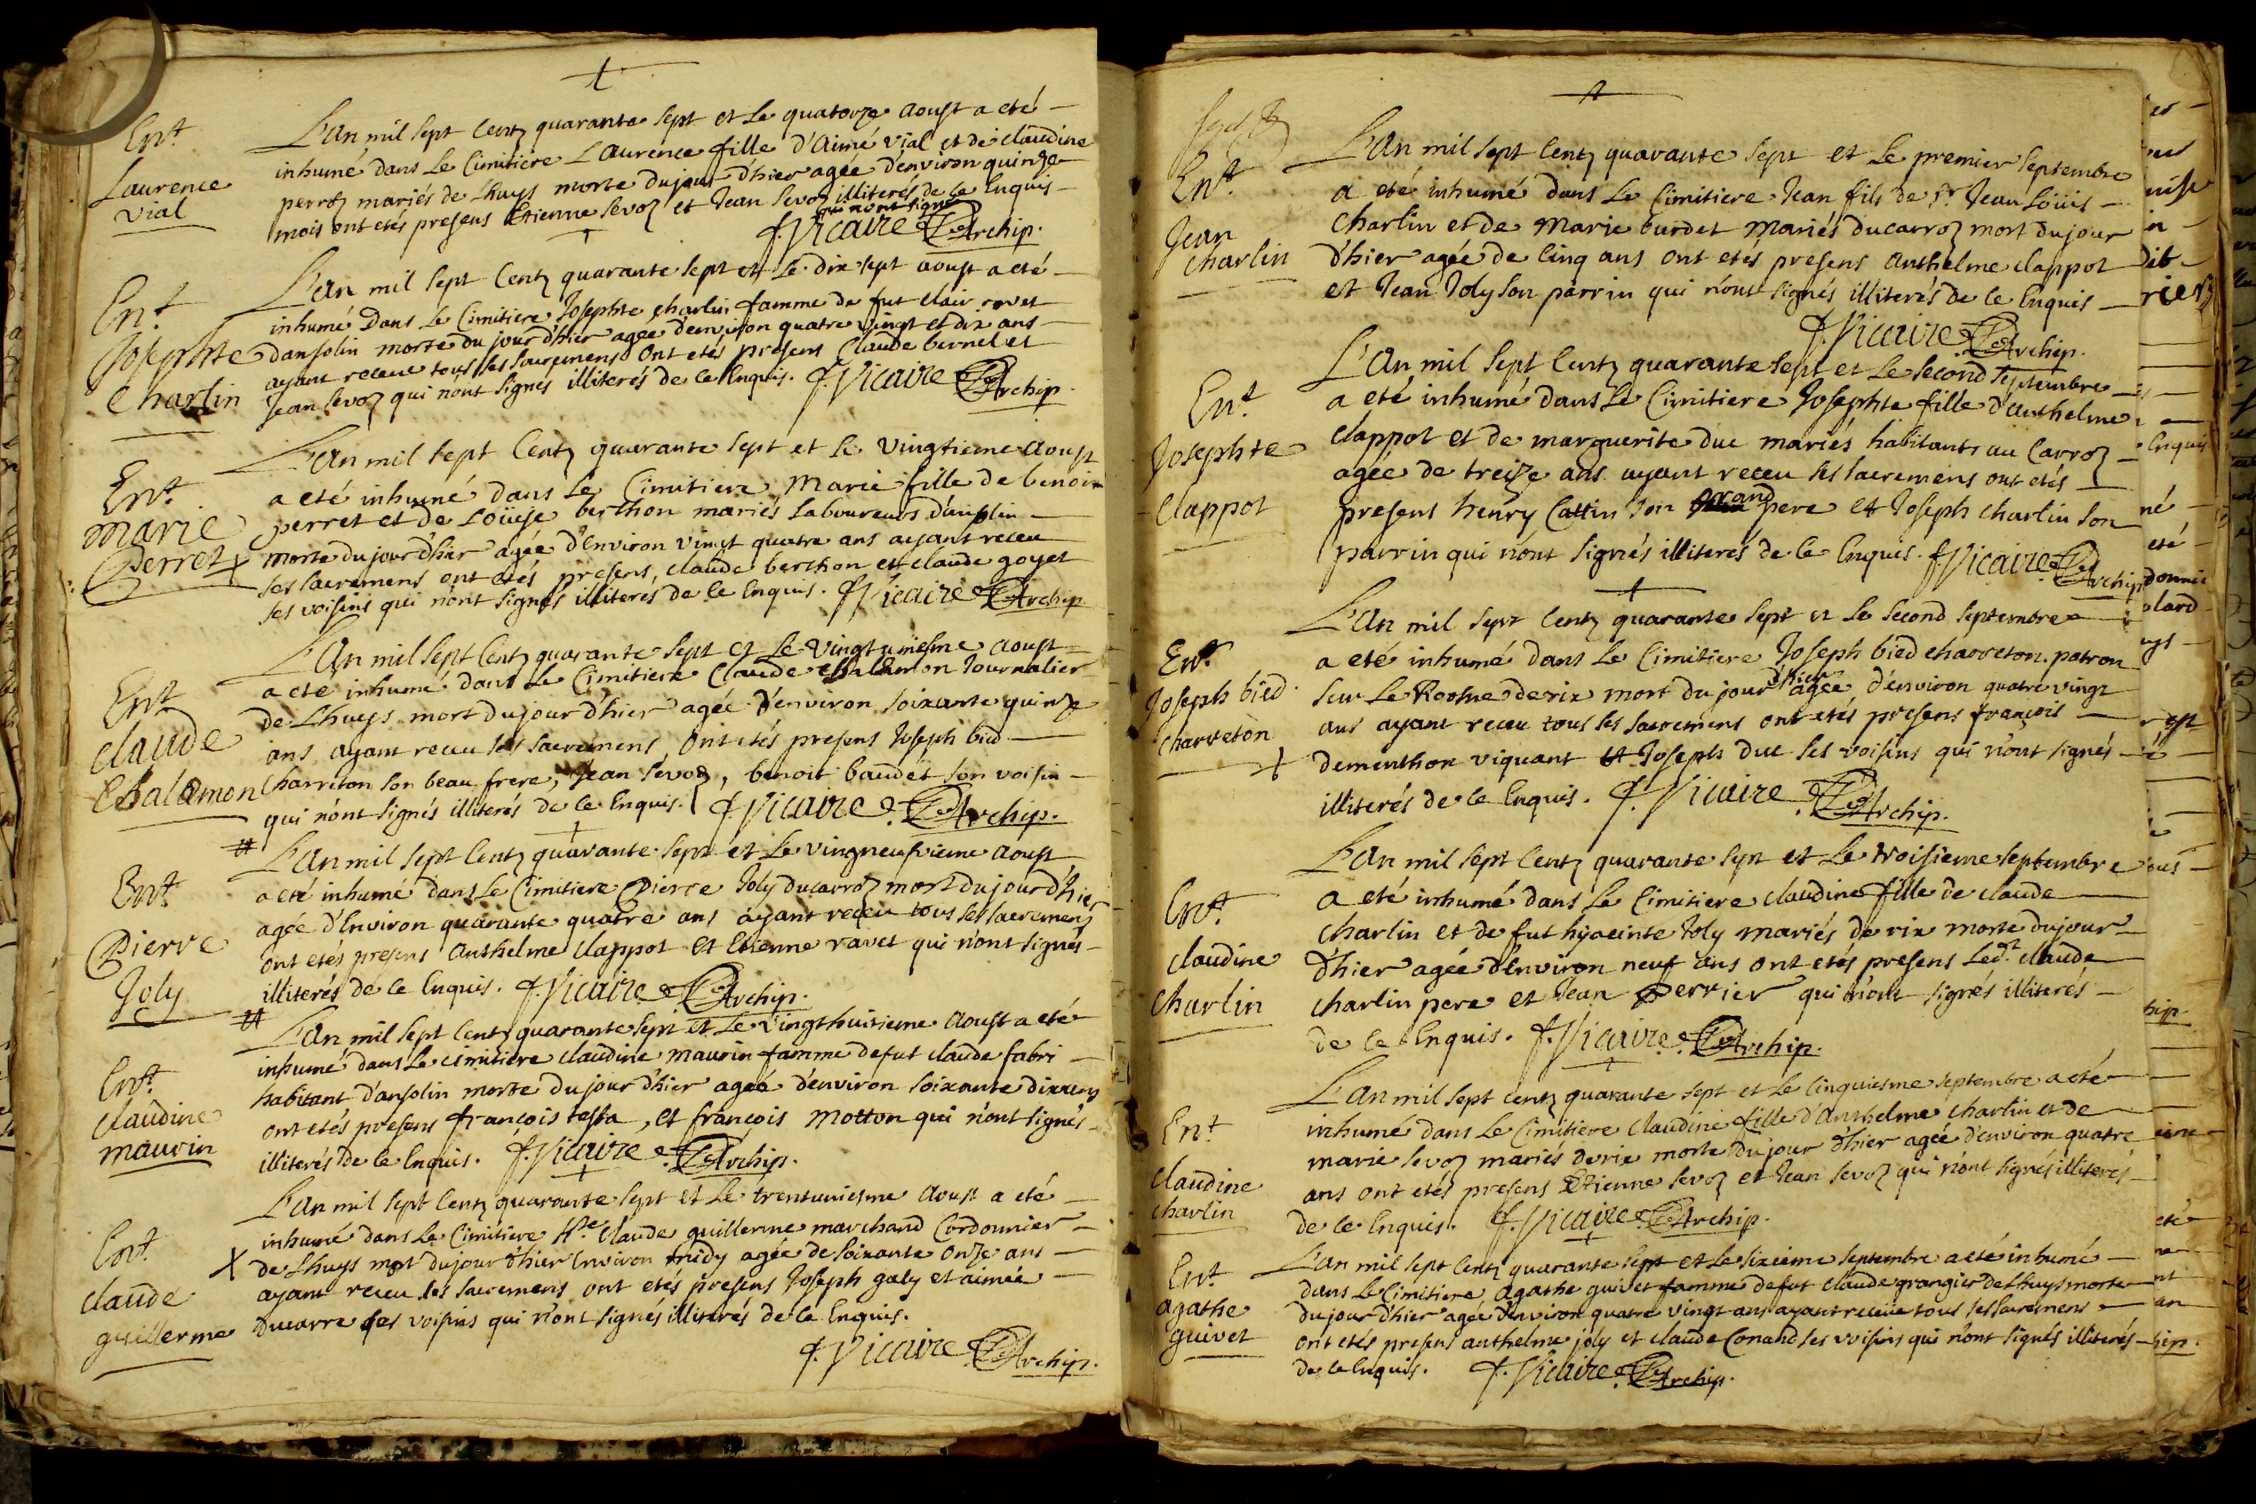 Ent
Laurence
vial
L'an mil sept Centz quarante sept et Le quatorze aoust a eté
inhumé dans Le Cimitiere Laurence fille d'aimé vial et de claudine
perroz mariés de Lhuys morte dujour d'hier agée d'environ quinze
mois ont etés presens Etienne sevoz et Jean sevoz illiterés de ce Enquis
qui n'ont signé
f. Vicaire Archip.
Ent
Josephte
Charlin
L'an mil sept Centz quarante sept et Le dix sept aoust a eté
inhumé Dans Le Cimitiere Josephte charlin famme de fut clair
dansolin morte du jour d'hier agée d'environ quatre vingt et dix ans
ayant receue tous ses sacremens Ont etés presens Claude bernel et
Jean sevoz qui n'ont signés illiterés de ce Enquis. f. Vicaire Archip
Ent
Marie
Perret
L'an mil sept Centz quarante sept et le vingtieme aoust
a eté inhumé dans Le Cimitiere Marie fille de benoit
perret et de Loüise berthon mariés Laboureurs d'ansolin
morte du jour d'hier agée d'Environ vingt quatre ans ayant receu
ses sacremens ont etés presens, claude berthon et claude goyet
ses voisins qui n'ont signés illiteres de ce Enquis. f. Vicaire Archip
Ent
claude
Chalamon
L'an mil sept Centz quarante sept et Le vingtuniesme aoust
a eté inhumé dans Le Cimitiere Claude Chalamon Journalier
de Lhuys mort dujour d'hier agée d'environ soixante quinze
ans ayant receu ses sacremens Ont etés presens Joseph bied
Charriton son beau frere, Jean sevoz, benoit baudet son voisin
qui n'ont signés illiterés de ce Enquis. f. Vicaire Archip.
Ent
Pierre
Joly
L'an mil sept Centz quarante sept et Le vingneufvieme aoust
a eté inhumé dans Le Cimitiere Pierre Joly ducarroz mort dujour d'hier
agée d'Environ quarante quatre ans ayant receu tous ses sacremens
ont etés presens anthelme Clappot et Etienne ravet qui n'ont signés
illiterés de ce Enquis. f. Vicaire Archip.
Ent
claudine
maurin
L'an mil sept Centz quarante sept et Le vingthuitieme aoust a eté
inhumé dans Le cimitiere claudine maurin famme defut claude fabri
habitant d'ansolin morte du jour d'hier ageé d'environ soixante dix ans
ont etés presens françois testa, et françois motton qui n'ont signés
illiterés de ce Enquis. f. Vicaire Archip.
Ent
claude
guillerme
L'an mil sept Centz quarante sept et Le trentuniesme aoust a eté
inhumé dans Le Cimitiere claude guillerme marchand Cordonnier
de Lhuys mort dujour d'hier Environ midy agée de soixante onze ans
ayant receu ses sacremens ont etés presens Joseph galy et aimée
ducarre ses voisins qui n'ont signés illiterés de ce Enquis.
f. Vicaire Archip.
Ent
Jean
charlin
L'an mil sept Centz quarante sept et Le premier septembre
a eté inhumé dans Le Cimitiere Jean fils de Sr Jean Loüis
Charlin et de Marie burdet Mariés ducarroz mort dujour
d'hier agée de Cinq ans ont etés presens anthelme clappot
et Jean Joly son parrin qui n'ont signés illiterés de ce Enquis
f. Vicaire Archip.
Ent
Josephte
clappot
L'an mil sept Centz quarante sept et Le second septembre
a eté inhumé dans Le Cimitiere Josephte fille d'anthelme
clappot et de marguerite duc mariés habitants au Carroz
agée de treize ans ayant receu ses sacremens ont etés
presens henry Cattin son grand pere et Joseph charlin son
parrin qui n'ont signés illiterés de ce Enquis. f. Vicaire Archip
Ent
Joseph bied
charreton
L'an mil sept Centz quarante sept et Le second septembre
a eté inhumé dans Le Cimitiere Joseph bied charreton patron
sur Le Rosne de rix mort du jour d'hier agée d'environ quatre vingt
ans ayant receu tous ses sacremens ont etés presens françois
dementhon viquant et Joseph duc ses voisins qui n'ont signés
illiterés de ce Enquis. f. Vicaire Archip.
Ent
claudine
charlin
L'an mil sept Centz quarante sept et Le troisieme septembre
a eté inhumé dans Le Cimitiere claudine fille de claude
charlin et de fut hyacinte Joly mariés de rix morte dujour
d'hier agée d'Environ neuf ans ont etés presens Ledt claude
charlin pere et Jean Perrier qui n'ont signés illiterés
de ce Enquis. f. Vicaire Archip.
Ent
claudine
charlin
L'an mil sept Centz quarante sept et Le Cinquiesme septembre a eté
inhumé dans Le Cimitiere Claudine fille d'anthelme charlin et de
marie sevoz mariés derix morte dujour d'hier agée d'environ quatre
ans ont etés presens Etienne sevoz et Jean sevoz qui n'ont signés illiterés
de ce Enquis. f. Vicaire Archip.
Ent
agathe
guivet
L'an mil sept Centz quarante sept et Le sixeime septembre a eté inhumé
dans Le Cimitiere agathe guivet famme defut claude grangier de Lhuys morte
dujour d'hier agée d'environ quatre vingt ans ayant receüe tous ses sacremens
ont etés presens anthelme joly et claude Conand ses voisins qui n'ont signés illiterés
de ce Enquis. f. Vicaire Archip.